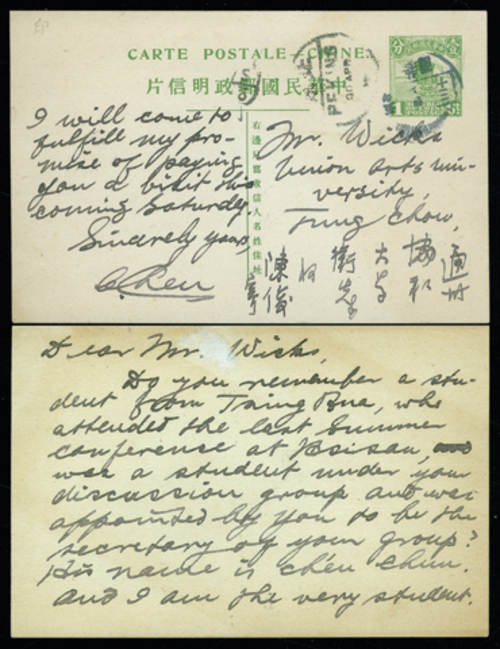 CARTE POSTALE CHINE
片信明政郵國民華中
分 壹
1
PEKING
APR
右邊只寫收信人名姓住址
I will come to
fulfill my pro-
mise of paying
you a visit this
coming Saturday.
Sincerely yours,
C. Chen
Mr. Wicks
Union Arts Uni-
versity,
Tung Chow.
通州
協和
大学
衛先
陳俊
Dear Mr. Wicks,
Do you remember a stu-
dent from Tsing Hua, who
attended the last Summer
conference at
was a student under your
discussion group and was
appointed by you to be the
secretary of your group?
His name is Chen Chun.
And I am the very student.